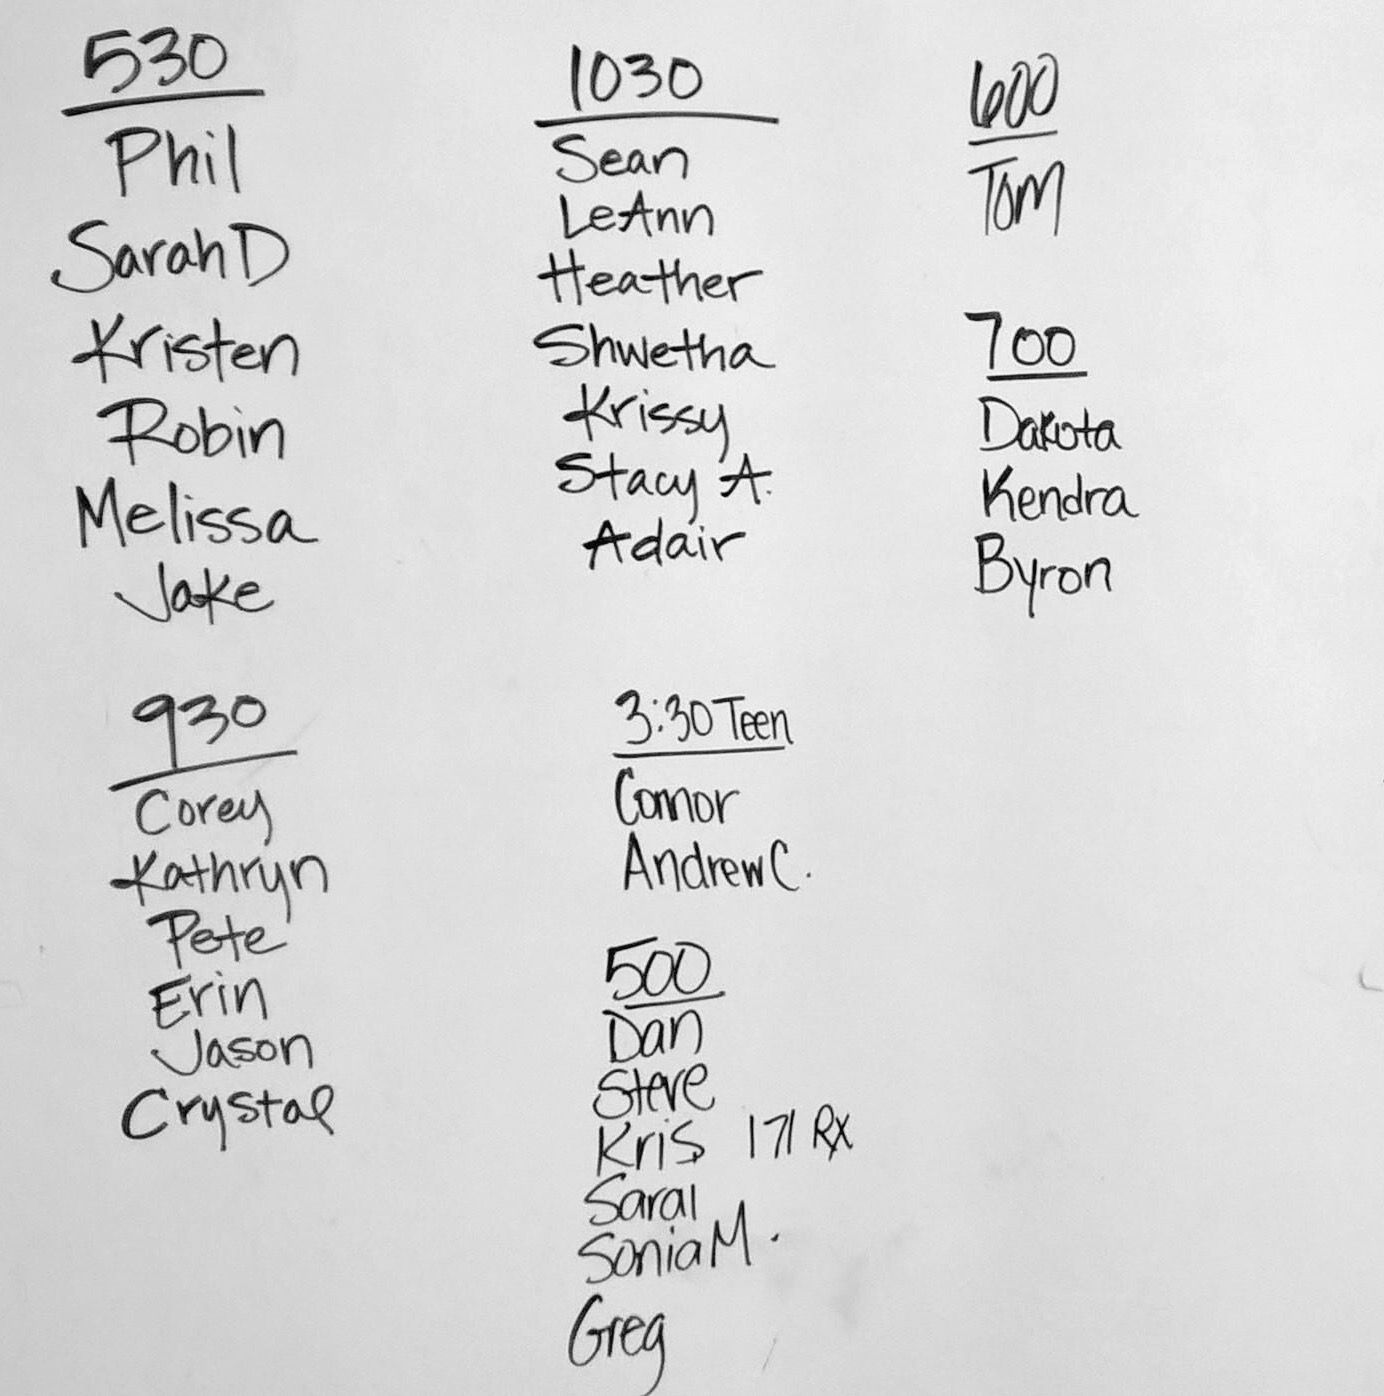 530
Phil
Sarah D
Kristen
Robin
Melissa
Jake
930
Corey
Kathryn
Pete
Erin
Jason
Crystal
1030
Sean
LeAnn
Heather
Shwetha
Krissy
Stacy A.
Adair
3:30 Teen
Connor
Andrew C.
500
Dan
Steve
Kris 171 RX
Sarai
Sonia M.
Greg
600
Tom
700
Dakota
Kendra
Byron